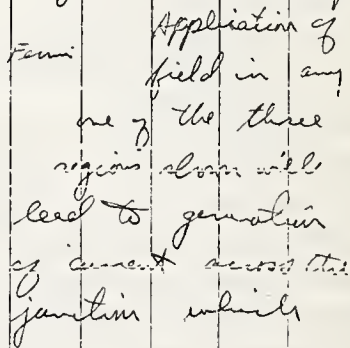 Application of
Fermi
field in any
one of the three
regions shown will
lead to generation
of current across the
junction which